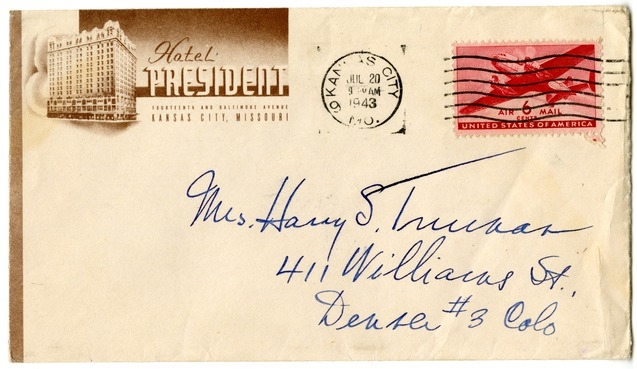 Hotel
PRESIDENT
FOURTEENTH AND BALTIMORE AVENUE
KANSAS CITY, MISSOURI
KANSAS CITY
JUL 20
AM
1943
MO.
6
CENTS
AIR MAIL
UNITED STATES OF AMERICA
Mrs. Harry S. Truman
411 Williams St.
Denver #3 Colo